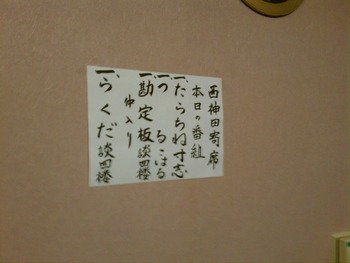 西神田寄席
本日の番組
一、たらちね 寸志
一、つる こはる
一、勘定板 談四楼
仲入り
一、らくだ 談四楼